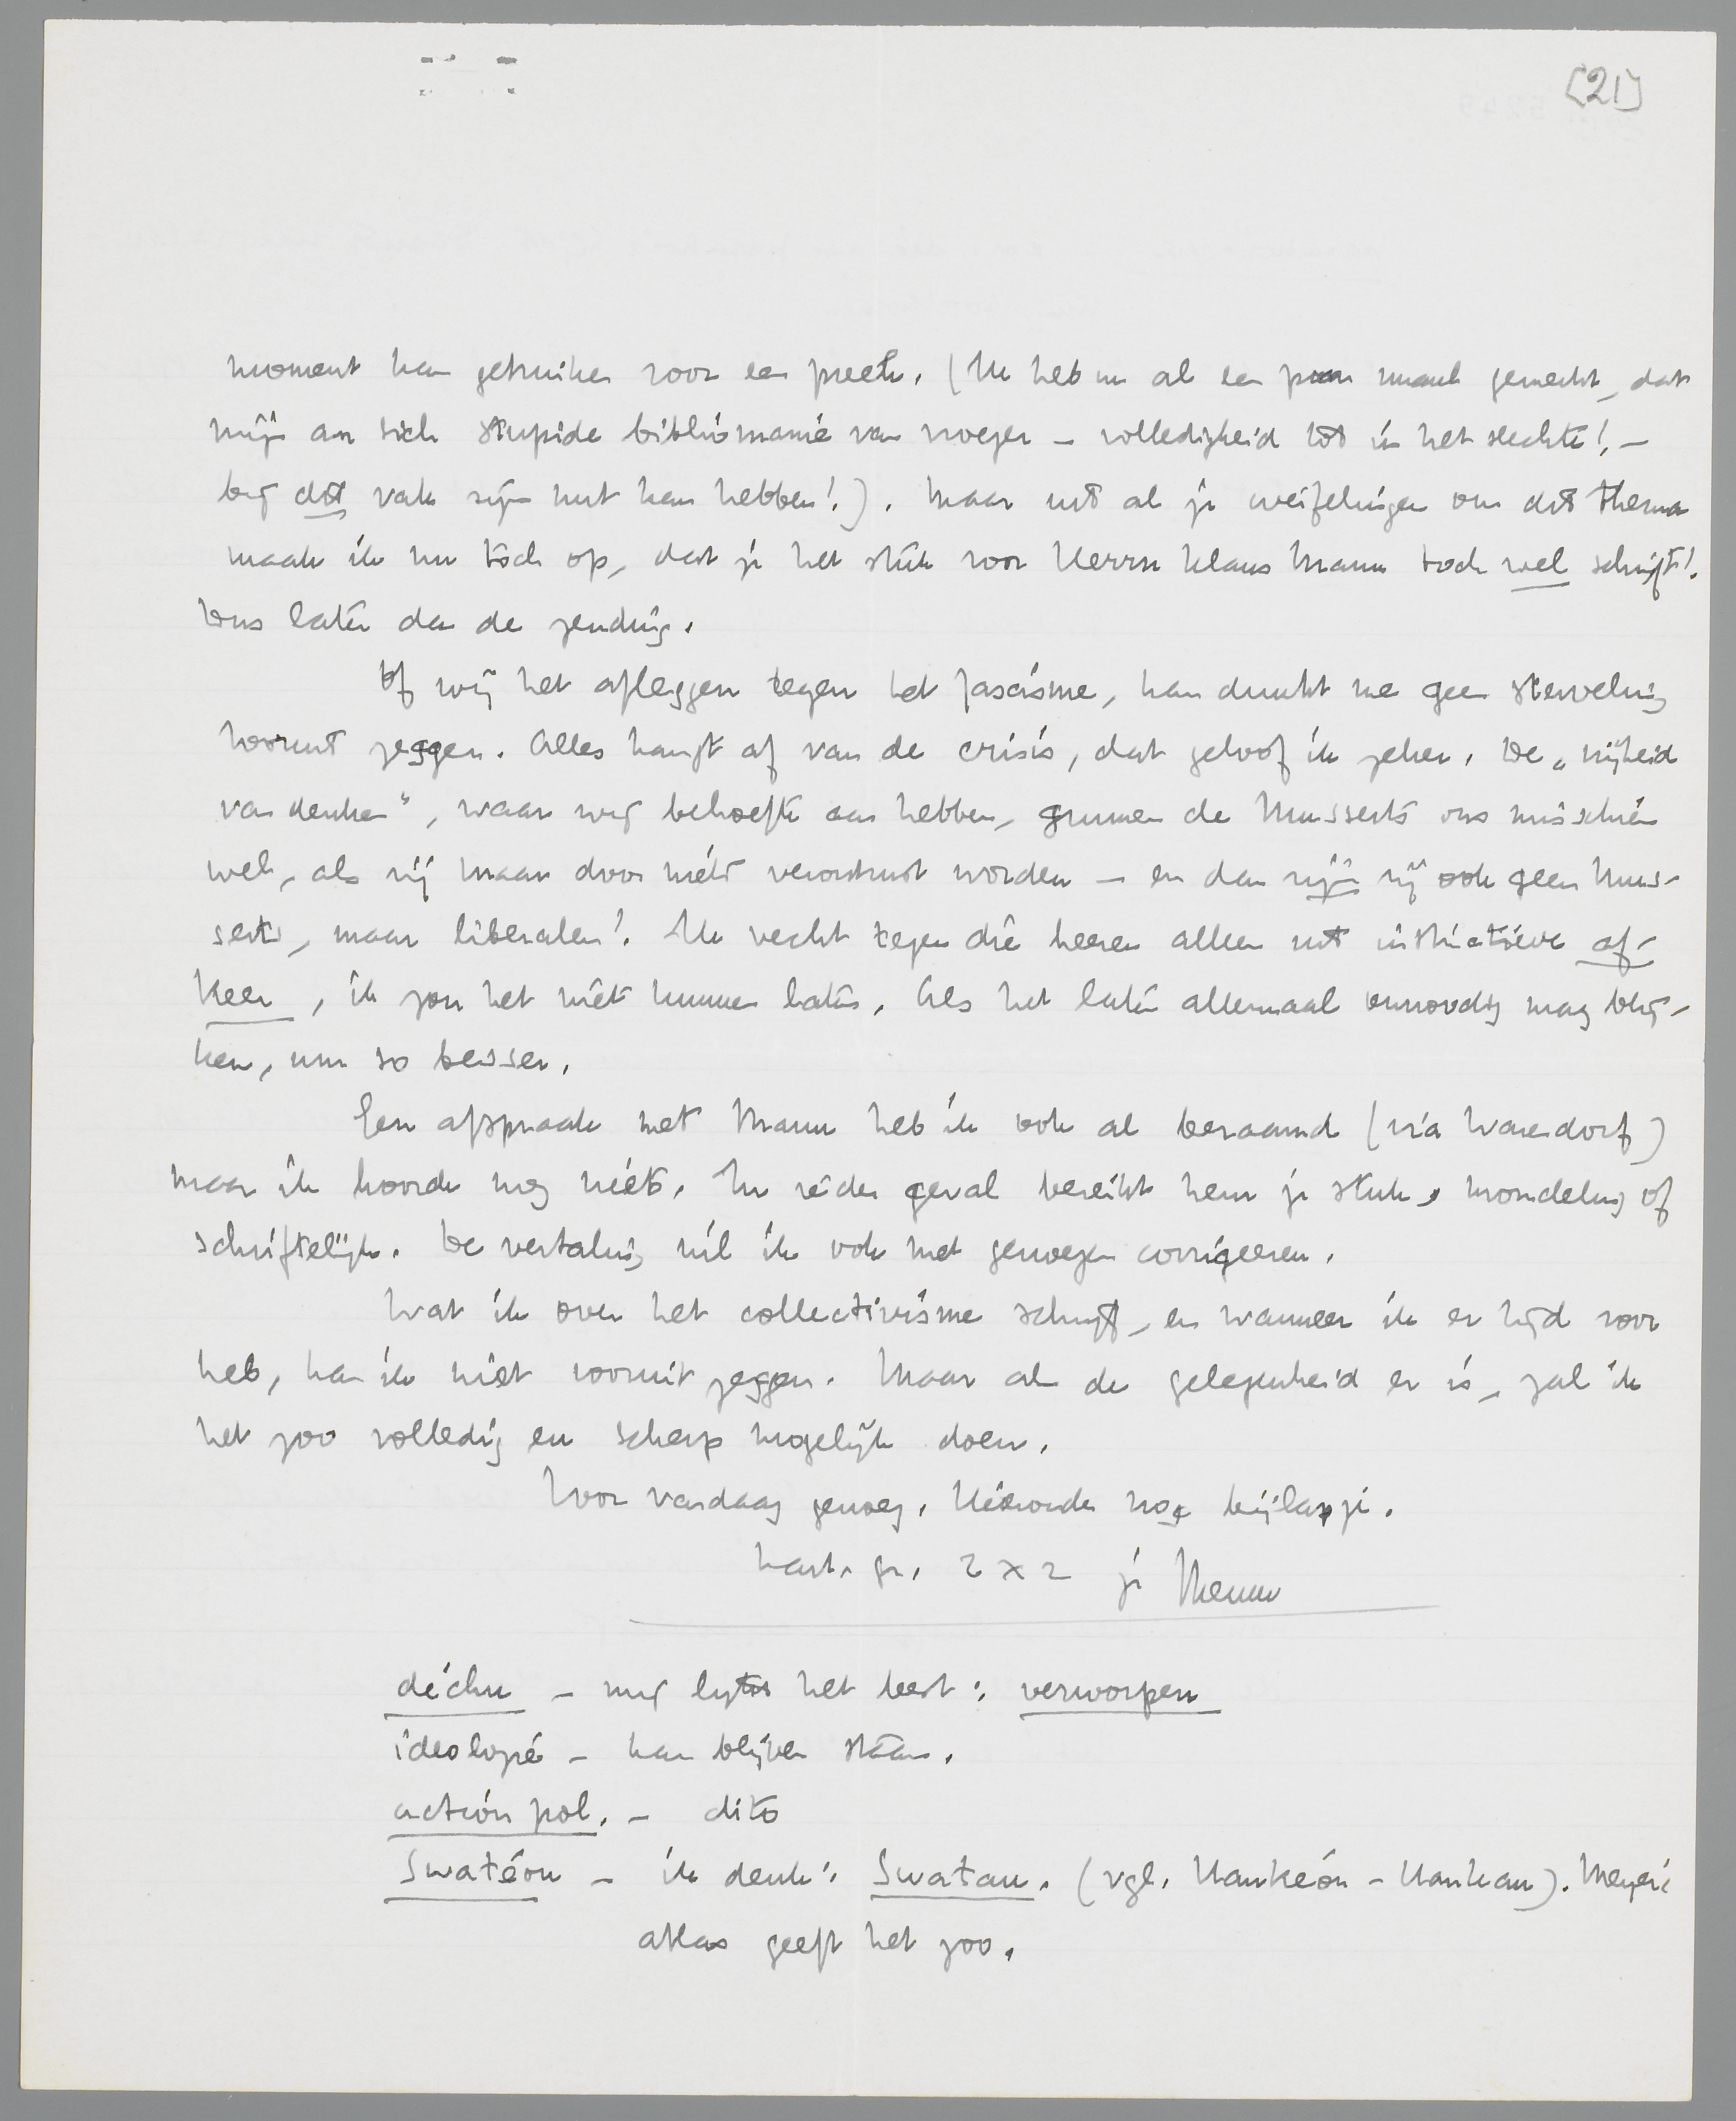 [21]
moment kan gebruiken voor een preek. (Ik heb nu al een paar maal gemerkt, dat
mijn an sich stupide bibliomanie van vroeger – volledigheid tot in het slechte! –
bij dit vak zijn nut kan hebben!). Maar uit al je weifelingen om dit thema
maak ik nu toch op, dat je het stuk voor Herrn Klaus Mann toch wel schrijft!
Dus laten dan de zending.
Of wij het afleggen tegen het fascisme, kan dunkt me geen sterveling
vooruit zeggen. Alles hangt af van de crisis, dat geloof ik zeker. De „vrijheid
van denken", waar wij behoefte aan hebben, gunnen de Musserts ons misschien
wel, als zij maar door niets verontrust worden – en dan zijn zij ook geen Mus-
serts, maar liberalen! Ik vecht tegen die heeren alleen uit instinctieve af-
keer, ik zou het niet kunnen laten. Als het later allemaal onnoodig mag blij-
ken, um so besser.
Een afspraak met Mann heb ik ook al beraamd (via Warendorf)
maar ik hoorde nog niets. In ieder geval bereikt hem je stuk, mondeling of
schriftelijk. De vertaling wil ik ook met genoegen corrigeeren.
Wat ik over het collectivisme schrijf, en wanneer ik er tijd voor
heb, kan ik niet vooruit zeggen. Maar als de gelegenheid er is, zal ik
het zoo volledig en scherp mogelijk doen.
Voor vandaag genoeg. Hieronder nog bijlapje.
hart. gr. 2 x 2 je Menno
déchu – mij lijkt het best: verworpen
ideologie – kan blijven staan.
action pol. – dito
Swatéou – ik denk: Swatau. (vgl. Hankéou – Hankau). Meyer's
atlas geeft het zoo.